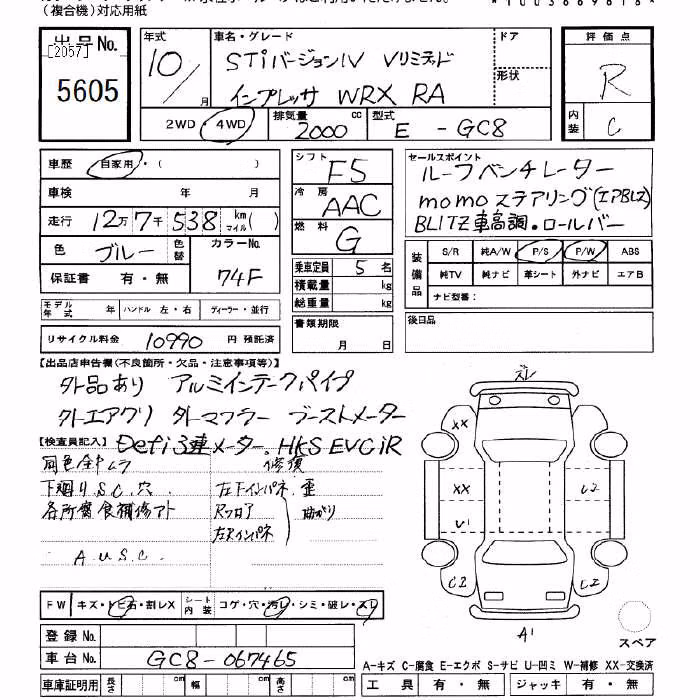 （複合機）対応用紙
出品No.
[2057]
5605
年式
10/
月
車名・グレード
STiバージョンⅣ Vリミテッド
インプレッサ WRX RA
ドア
形状
評価点
R
内装
C
2WD・4WD
排気量
2000
cc
型式
E - GC8
車歴
自家用・(　　　)
車検
年　月
走行
12万7千538
km
マイル
(　)
色
ブルー
色替
カラーNo.
74F
保証書
有・無
モデル年式
年
ハンドル 左・右
ディーラー・並行
リサイクル料金
10990
円 預託済
シフト
F5
冷房
AAC
燃料
G
乗車定員
5
名
積載量
kg
総重量
kg
書類期限
月　日
セールスポイント
ルーフベンチレーター
momoステアリング(エアBレス)
BLITZ車高調・ロールバー
装備品
S/R 純A/W P/S P/W ABS
純TV 純ナビ 革シート 外ナビ エアB
ナビ型番：
後日品
【出品店申告欄(不良箇所・欠品・注意事項等)】
外品あり アルミインテークパイプ
外エアクリ 外マフラー ブーストメーター
Defi3連メーター. HKS EVCiR
【検査員記入】
同色全部ムラ
下廻りS.C.穴.
各所腐食補修アト
A U S C.
修復
左下インパネ. 歪
Rフロア
左右インパネ
曲がり
FW
キズ・トビ石・割レX
シート内装
コゲ・穴・汚レ・シミ・破レ・スレ
登録No.
車台No.
GC8-067465
車庫証明用
長さ
cm
幅
cm
高さ
cm
ズレ
XX
XX
U1
C2
C2
C2
A1
スペア
A-キズ C-腐食 E-エクボ S-サビ U-凹ミ W-補修 XX-交換済
工具 有・無
ジャッキ 有・無